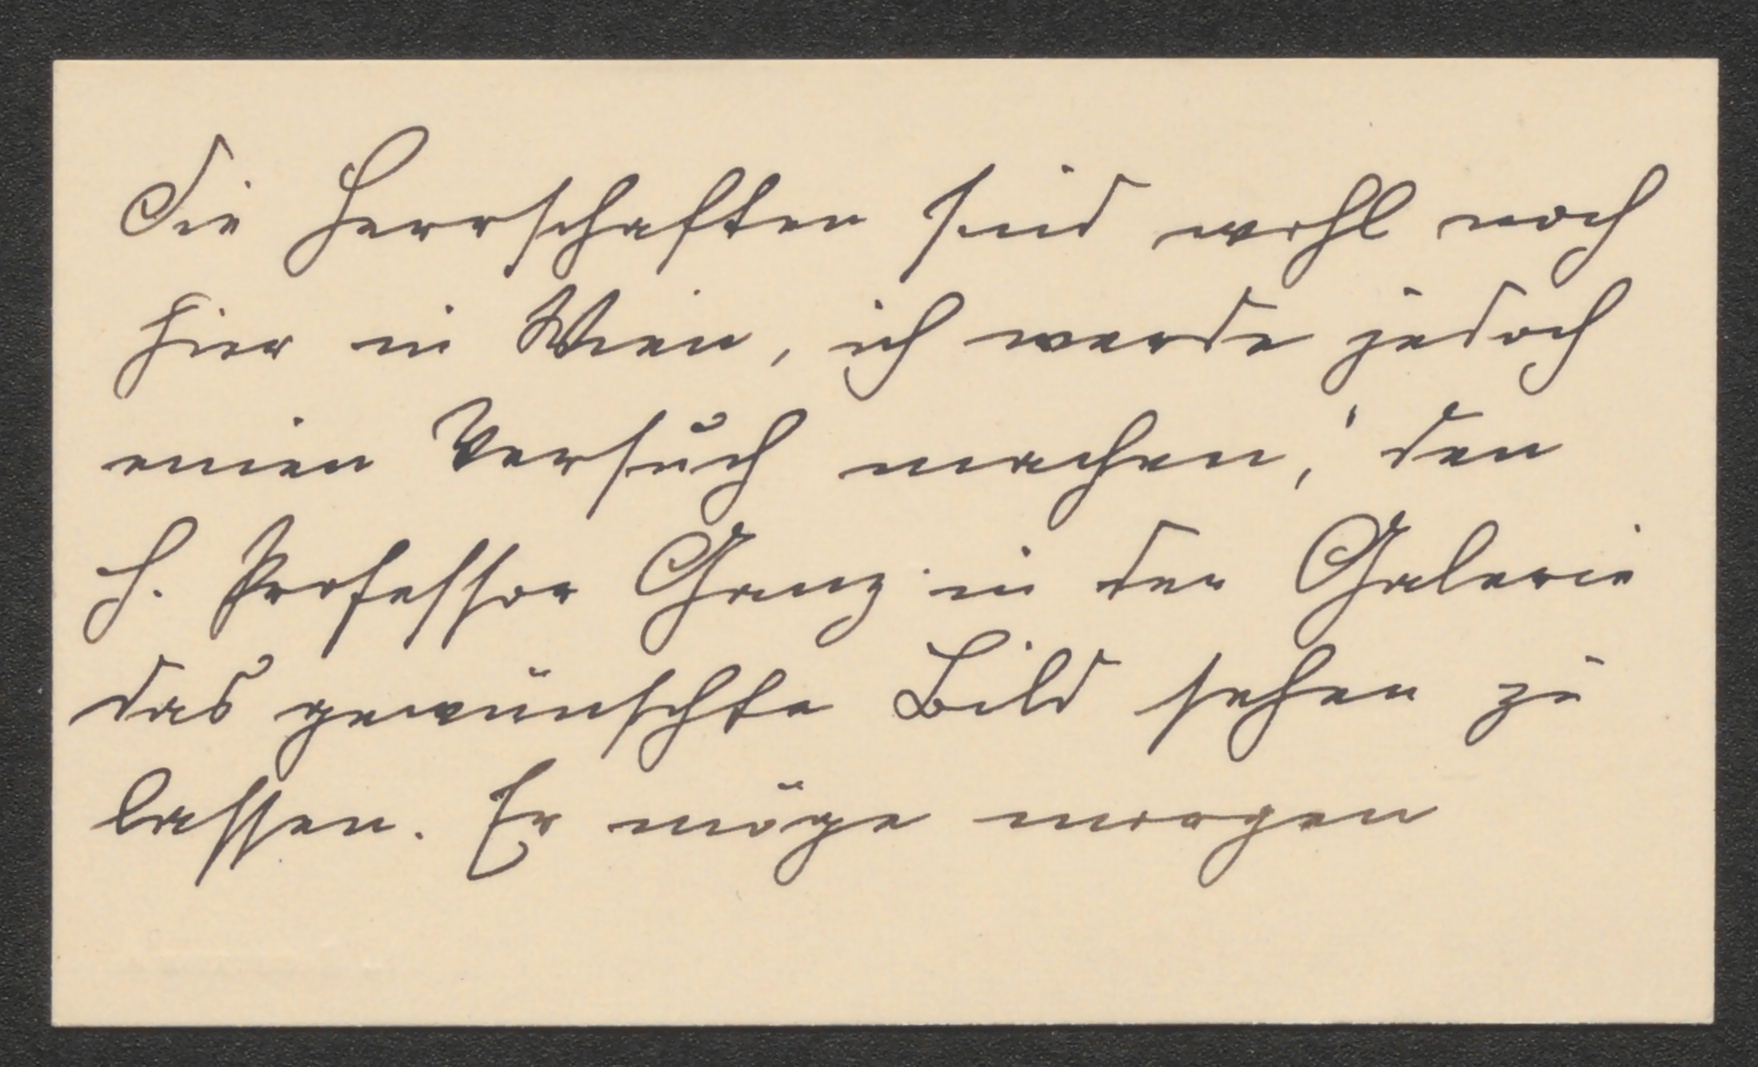 Die Herrschaften sind wohl noch
hier in Wien, ich werde jedoch
einen Versuch machen, den
H. Professor Ganz in der Galerie
das gewünschte Bild sehen zu
lassen. Er möge morgen